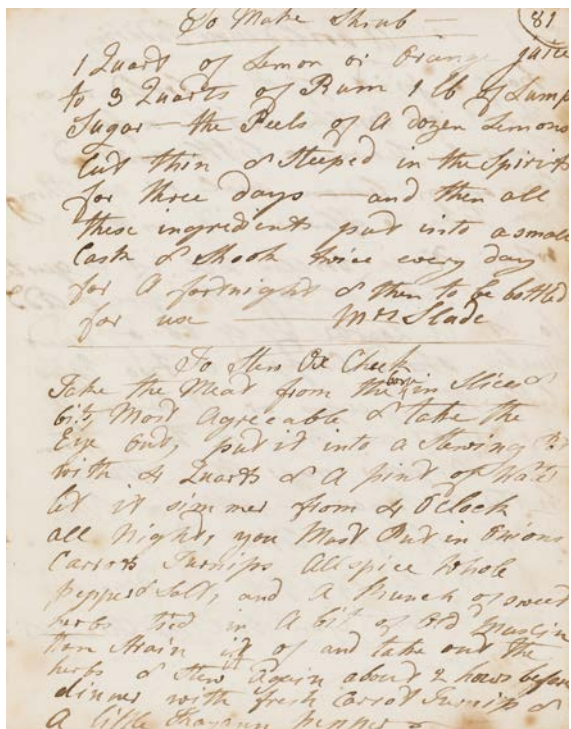 To Make Shrub —
81
1 Quart of Lemon or Orange juice
to 3 Quarts of Rum 1 lb of Lump
Sugar — the Peels of A dozen Lemons
Cut thin & Steeped in the Spirits
for three days — and then all
these ingredients put into a small
Cask & Shook twice every day
for A fortnight & then to be bottled
for use — Mrs Slade
To Stew Ox Cheek
Take the Meat from the bone in Slices &
bits Most Agreeable & take the
Eye out, put it into a Stewing
with 4 Quarts & A pint of Water
let it simmer from 4 OClock
all Night, you Must Put in Onions
Carrots Turnips Allspice Whole
Pepper & Salt, and A Bunch of sweet
herbs tied in A bit of Old Muslin
then Strain it of and take out the
herbs & Stew it Again about 2 hours before
dinner with fresh Carrot Turnips &
A little pepper